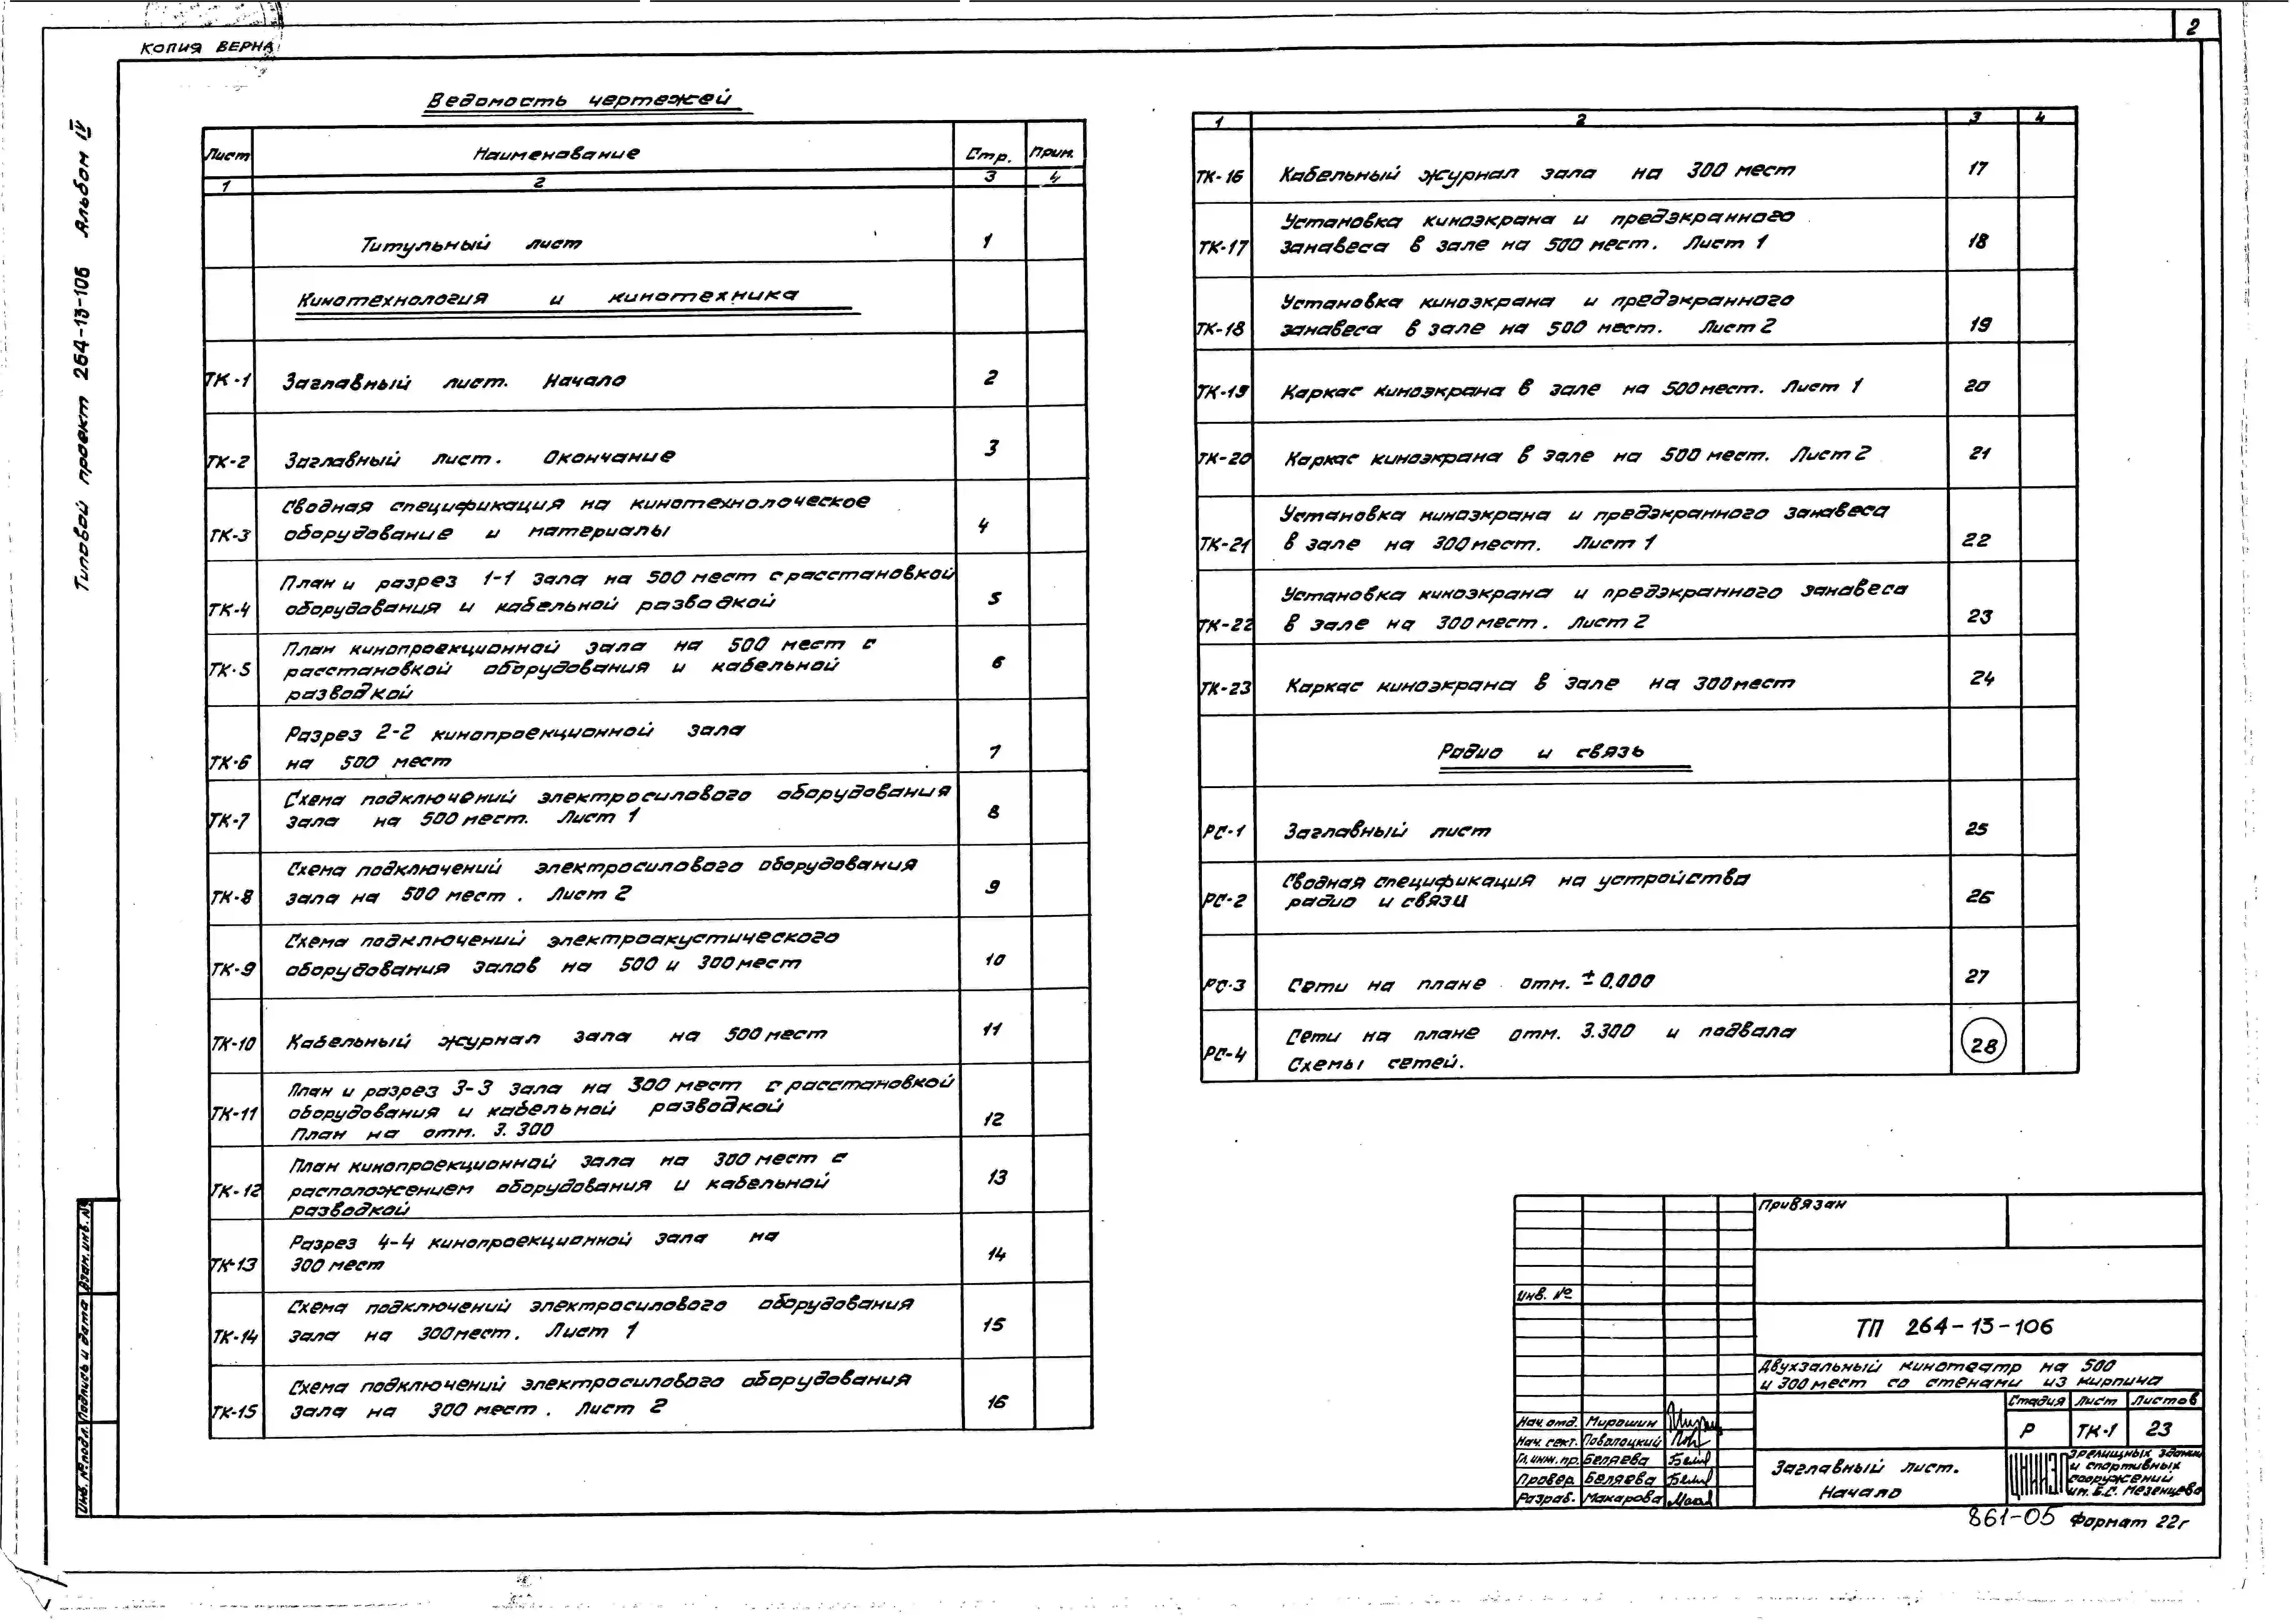 2
КОПИЯ ВЕРНА
Типовой проект 264-13-106 Альбом IV
Ведомость чертежей
Лист Наименование Стр. Прим.
1 2 3 4
Титульный лист 1
Кинотехнология и кинотехника
ТК-1 Заглавный лист. Начало 2
ТК-2 Заглавный лист. Окончание 3
Сводная спецификация на кинотехнолоческое
ТК-3 оборудование и материалы 4
План и разрез 1-1 зала на 500 мест с расстановкой
ТК-4 оборудования и кабельной разводкой 5
План кинопроекционной зала на 500 мест с
ТК-5 расстановкой оборудования и кабельной 6
разводкой
Разрез 2-2 кинопроекционной зала
ТК-6 на 500 мест 7
Схема подключений электросилового оборудования
ТК-7 зала на 500 мест. Лист 1 8
Схема подключений электросилового оборудования
ТК-8 зала на 500 мест. Лист 2 9
Схема подключений электроакустического
ТК-9 оборудования залов на 500 и 300 мест 10
ТК-10 Кабельный журнал зала на 500 мест 11
План и разрез 3-3 зала на 300 мест с расстановкой
ТК-11 оборудования и кабельной разводкой 12
План на отм. 3.300
План кинопроекционной зала на 300 мест с
ТК-12 расположением оборудования и кабельной 13
разводкой
Разрез 4-4 кинопроекционной зала на
ТК-13 300 мест 14
Схема подключений электросилового оборудования
ТК-14 зала на 300 мест. Лист 1 15
Схема подключений электросилового оборудования
ТК-15 зала на 300 мест. Лист 2 16
1 2 3 4
ТК-16 Кабельный журнал зала на 300 мест 17
Установка киноэкрана и предэкранного
ТК-17 занавеса в зале на 500 мест. Лист 1 18
Установка киноэкрана и предэкранного
ТК-18 занавеса в зале на 500 мест. Лист 2 19
ТК-19 Каркас киноэкрана в зале на 500 мест. Лист 1 20
ТК-20 Каркас киноэкрана в зале на 500 мест. Лист 2 21
Установка киноэкрана и предэкранного занавеса
ТК-21 в зале на 300 мест. Лист 1 22
Установка киноэкрана и предэкранного занавеса
ТК-22 в зале на 300 мест. Лист 2 23
ТК-23 Каркас киноэкрана в зале на 300 мест 24
Радио и связь
РС-1 Заглавный лист 25
Сводная спецификация на устройства
РС-2 радио и связи 26
РС-3 Сети на плане отм. ±0.000 27
Сети на плане отм. 3.300 и подвала
РС-4 Схемы сетей. 28
Привязан
Инв. №
ТП 264-13-106
Двухзальный кинотеатр на 500
и 300 мест со стенами из кирпича
Стадия Лист Листов
Р ТК-1 23
Нач. отд. Мирошин
Нач. сект. Поволоцкий
Гл. инж. пр. Беляева
Провер. Беляева
Разраб. Макарова
Заглавный лист.
Начало
ЦНИИЭП зрелищных зданий
и спортивных
сооружений
им. Б.С. Мезенцева
861-05 Формат 22г
Инв. № подл. Подпись и дата Взам. инв. №